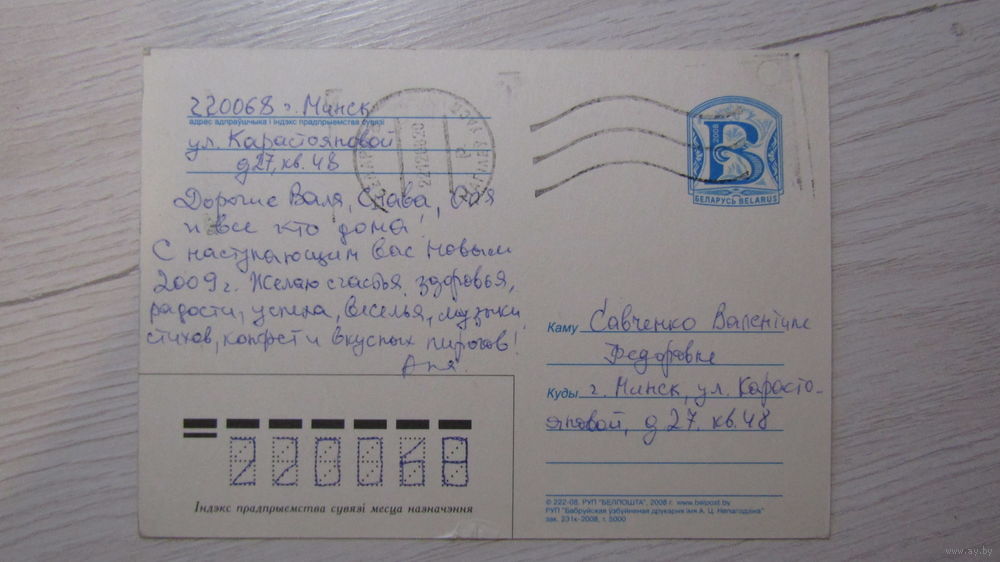 220068 г. Минск
адрес адпраўшчыка і індэкс прадпрыемства сувязі
ул. Карастояновой
д 27, кв. 48
Дорогие Валя, Слава, Оля
и все кто дома!
С наступающим Вас Новым
2009 г. Желаю счастья, здоровья,
радости, успеха, веселья, музыки
стихов, конфет и вкусных пирогов!
Аня.
2008
B
БЕЛАРУСЬ BELARUS
Каму Савченко Валентине
Федоровне
Куды г. Минск, ул. Карасто-
яновой, д 27. кв. 48
220068
Індэкс прадпрыемства сувязі месцаназначэння
© 222-08. РУП "БЕЛПОШТА", 2008 г. www.belpost.by
РУП "Бабруйская ўзбуйненая друкарня імя А. Ц. Непагодзіна"
зак. 231к-2008, т. 5000
www.ay.by